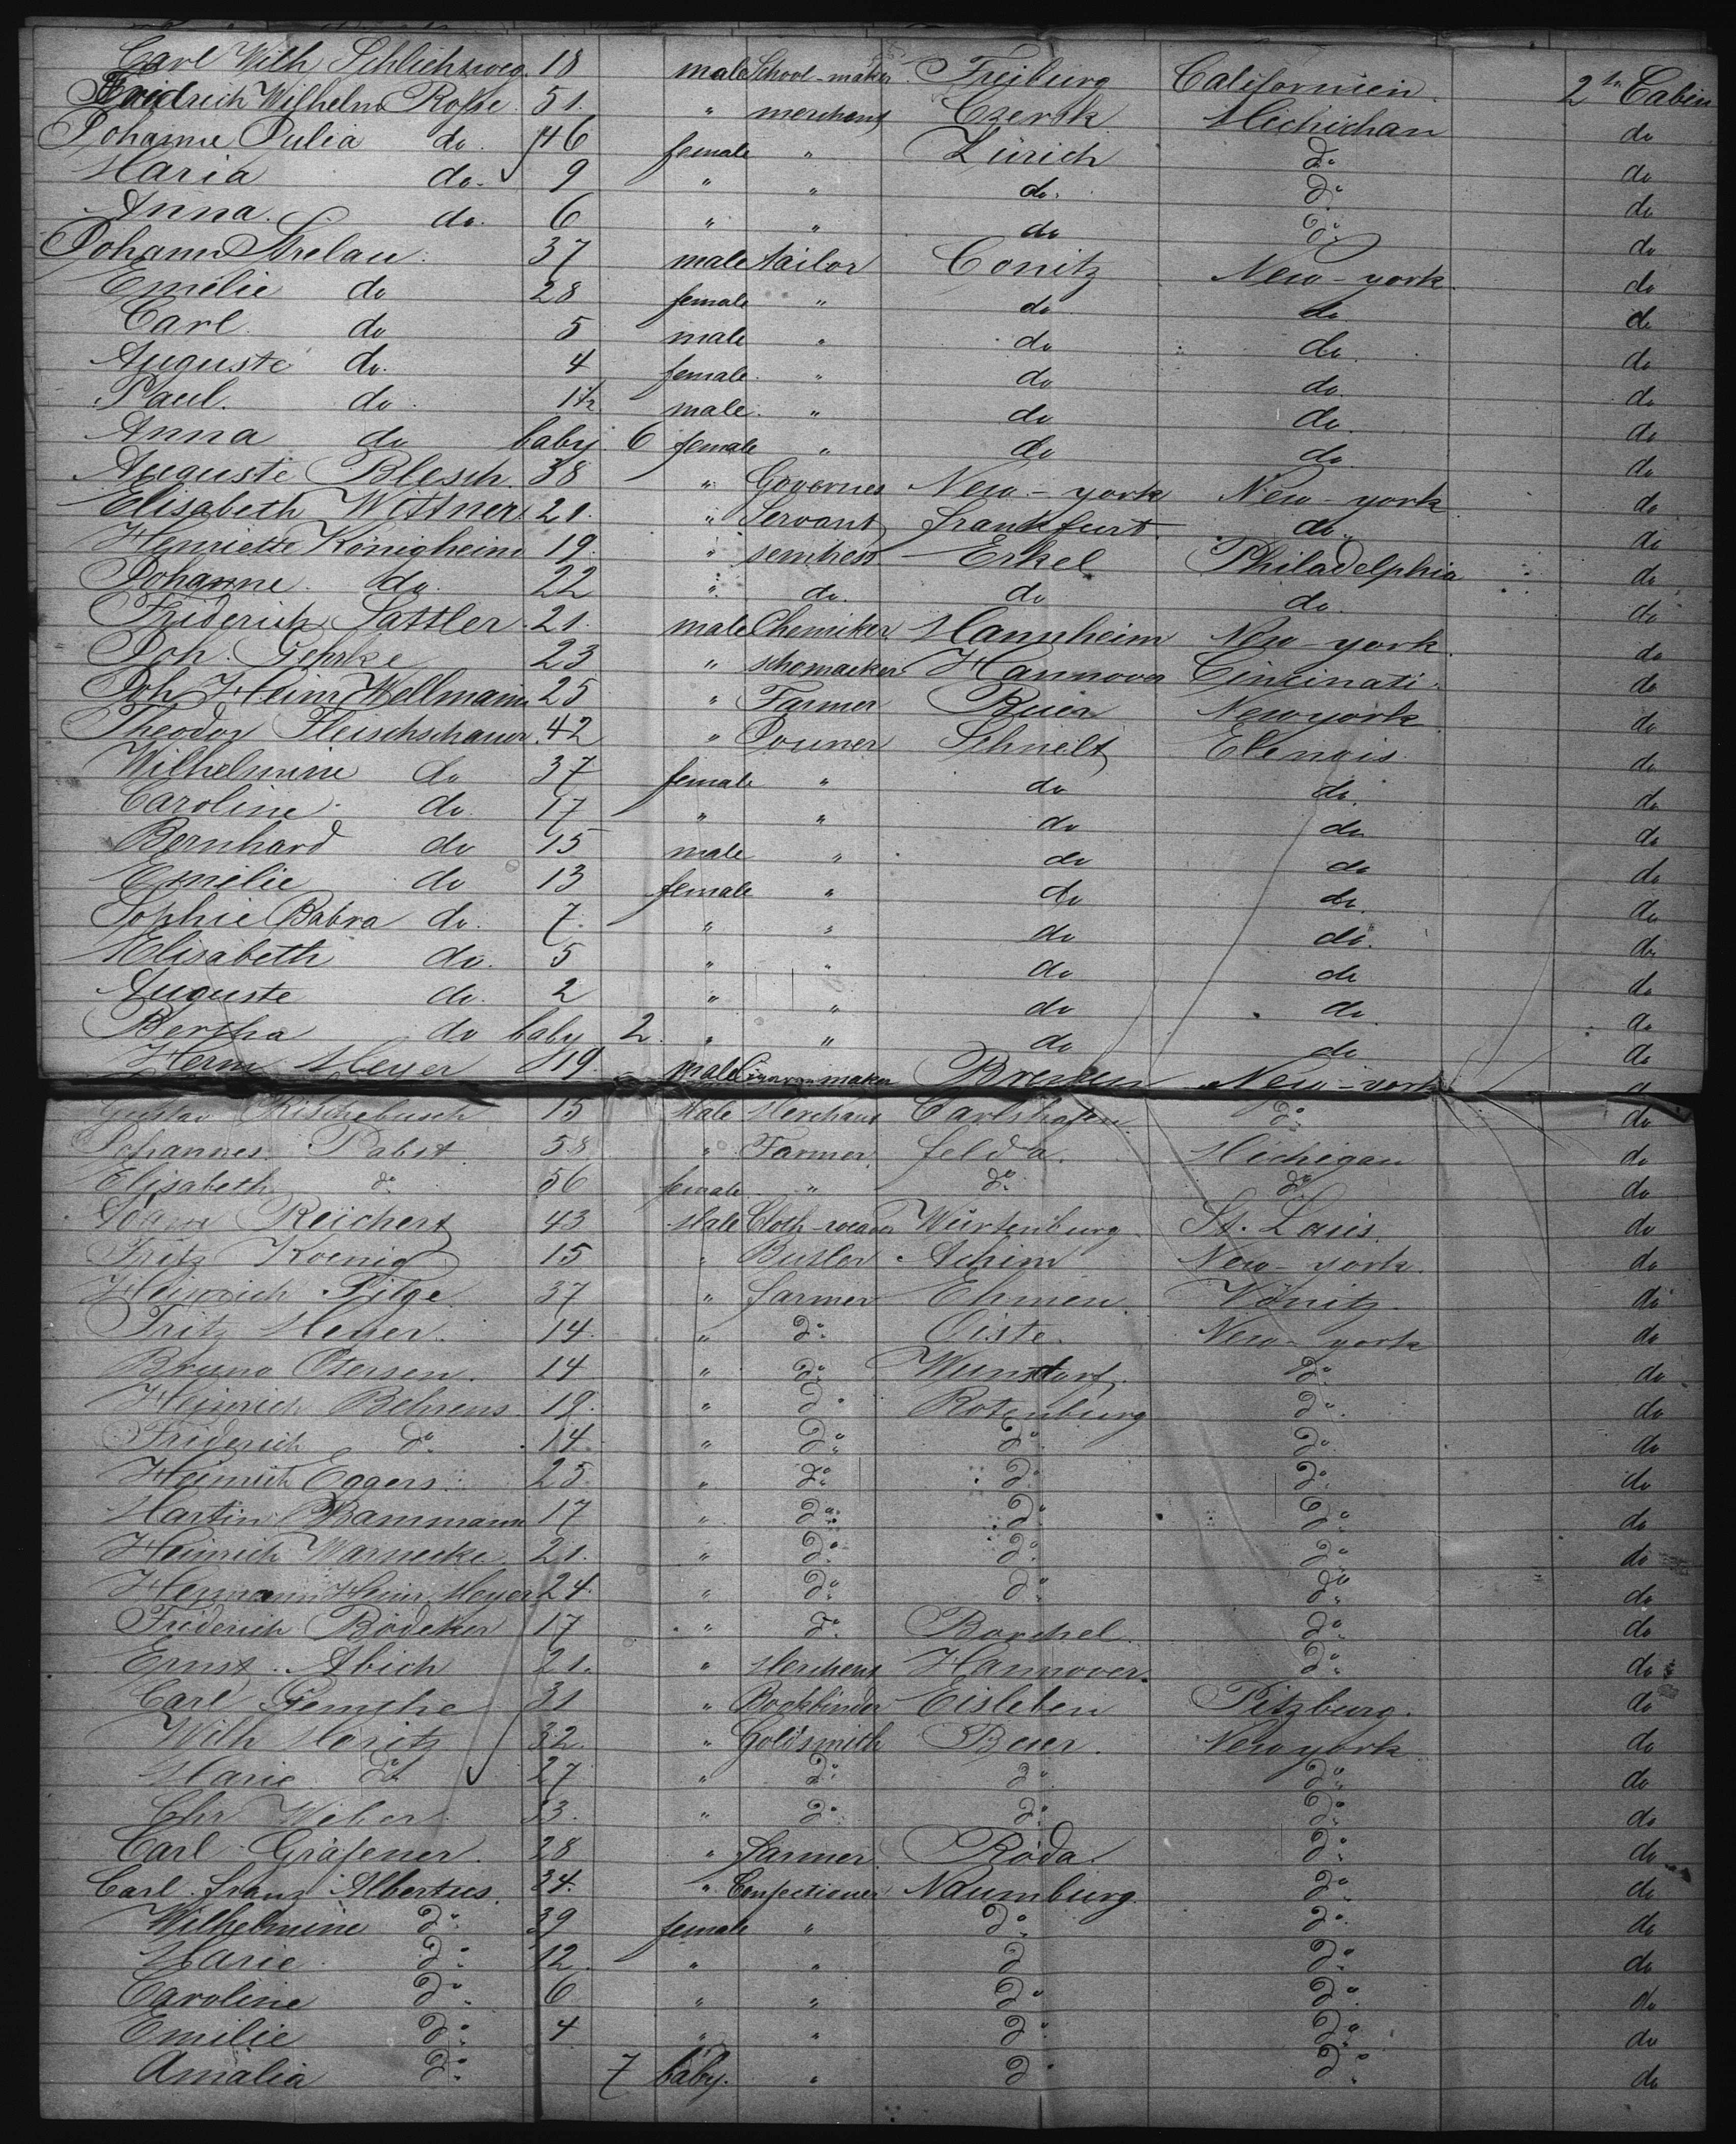 Carl Wilh Schlichsweg. 18 male School-maker Freiburg Californien. 2te Cabin
Fridrich Wilhelm Rohse 51. " merchant Czersk Michichan do
Johanne Julia do. 46 female " Zürich do do
Maria do. 9 " " do. do do
Anna. do. 6 " " do do do
Johann Strelau. 37 male tailor Conitz New-york. do
Emilie do 28 female " do do do
Carl. do 5 male " do do do
Auguste do. 4 female " do do. do
Paul. do 1½ male. " do do. do
Anna do baby. 6 female " do do. do
Auguste Blesch. 38 " Governes New-york New-york do
Elisabeth Wittner. 21. " Servant frankfurt. do. do
Henriette Königheim 19. " Erkel Philadelphia do
Johanne. do. 22 " do. do do. do
Friderich Sattler. 21. male Chemiker Mannheim New-york. do
Joh. Gehrke 23 " schomacker Hannover Cincinati. do
Joh Heinr Wellmann 25 " Farmer Buer Newyork do
Theodor Fleischhauer. 42 " Schneilt Elenois. do
Wilhelmine do 37 female " do do. do
Caroline do. 17 " " do do do
Bernhard do 15 male " do do do
Emilie do 13 female " do do. do
Sophie Babra do. 7. " " do do. do
Elisabeth do. 5 " " do do do
Auguste do. 2 " " do do do
Bertha do baby 2. " " do do do
Herm Meyer 19. male Cigarrenmaker Bremen New-york
Gustav Rischebusch 15 Male Merchant Carlshafen. do do
Johannes. Pabst. 58 " Farmer. felda. Michigan do
Elisabeth do 56 female " do do do
Reichert 43 Male Cloth-weaver Würtenburg. St. Louis. do
Fritz Koenig 15 " Butler Achim New-york. do
Heinrich Pilge. 37 " farmer Ehmen. Vönitz. do
Fritz Meyer. 14. " do Oiste. New-york do
Bruno Otersen. 14 " do Wunstorf. do do
Heinrich Behrens. 19. " do Rotenburg do do
Friderich do 14. " do do do do
Heinrich Eggers. 25. " do do do do
Martin Bammann 17 " do do do do
Heinrich Warnecke. 21. " do do do do
Hermann Heinr Meyer 24. " do do do do
Friderich Bödeker 17 " do Borchel. do do
Ernst. Abich 21. " Merchent Hannover. do do
Carl Gemthe 31 " Bookbinder Eisleben Pitzburg. do
Wilh Moritz 32. " Goldsmith Buer. Newyork do
Marie do 27 " do do do do
Chr Weber. 23. " do do do do
Carl Gräfener. 28 " farmer. Roda. do do
Carl franz Albertus. 34. " Confectioner Naumburg. do do
Wilhelmine do 39 female " do do do
Marie. do 12. " " do do do
Caroline do 6 " " do do do
Emilie do 4 " " do do do
Amalia do 7 baby. " do do do